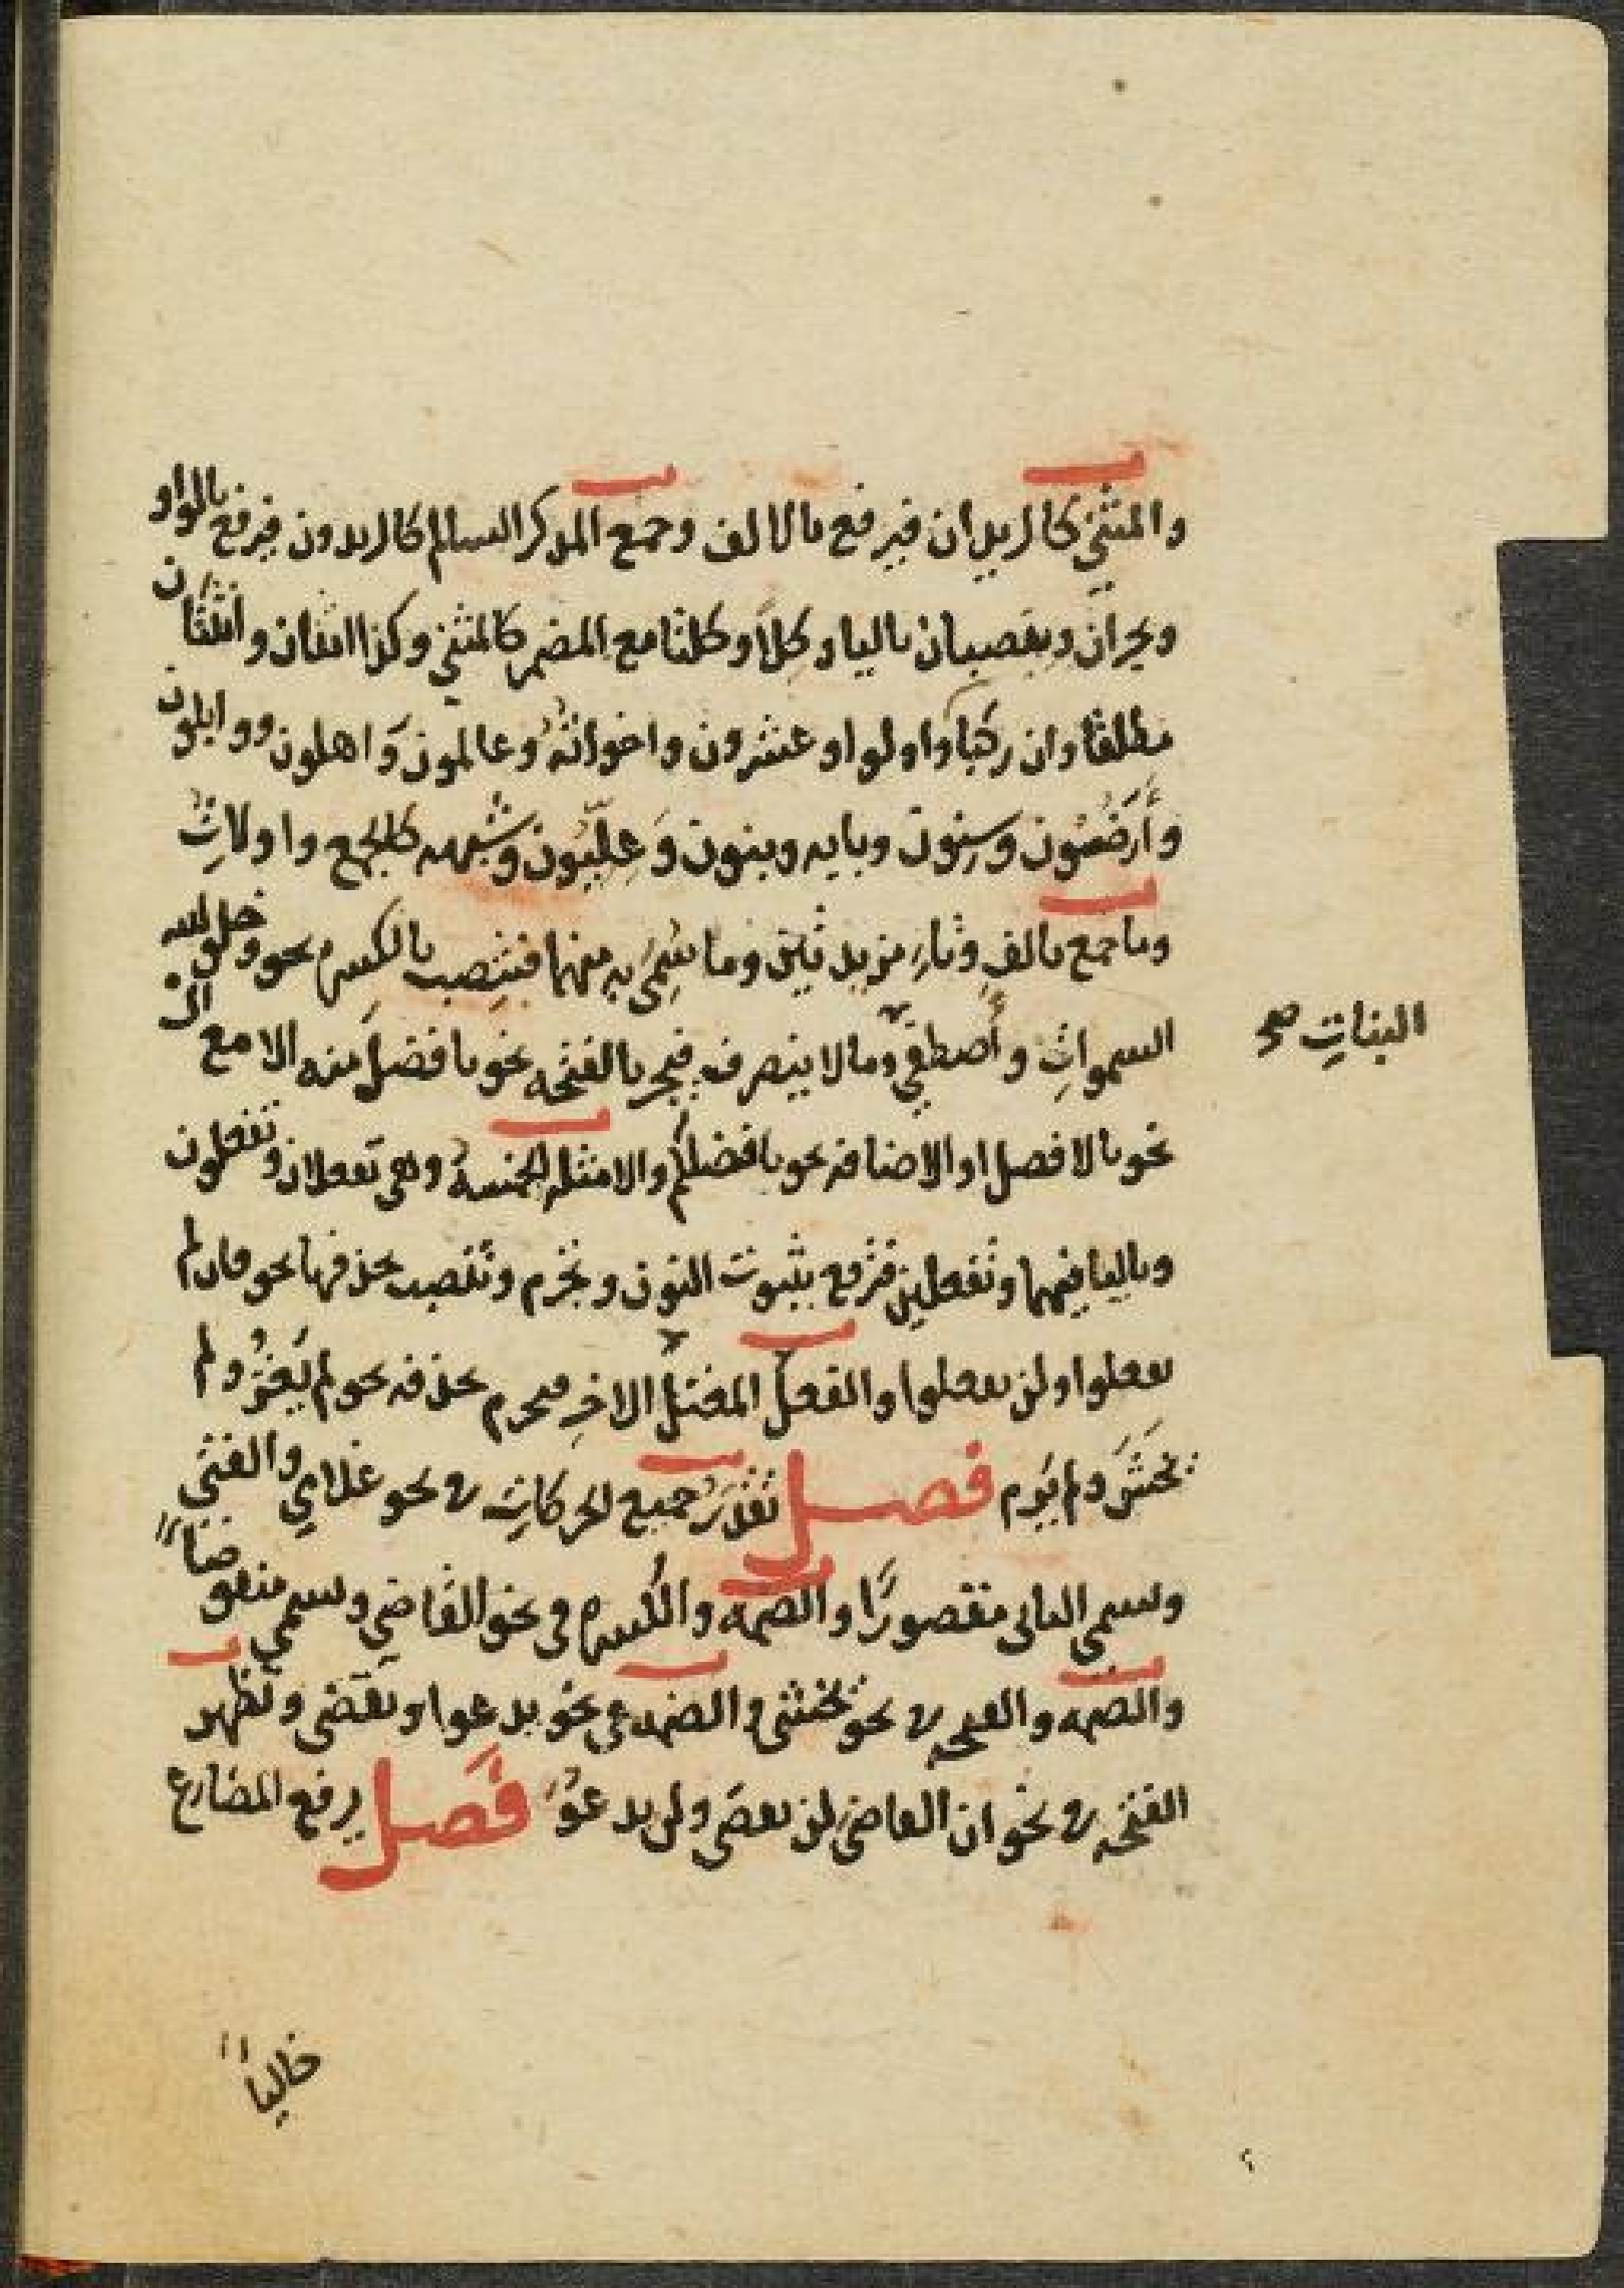 والمثنى كالزيدان فيرفع بالالف وجمع المذكر السالم كالزيدون فيرفع بالواو
ويجران وينصبان بالياء وكِلاَ وكلتا مع المضمر كالمثنى وكذا اثنان واثنتان
مطلقا وان ركبا واولوا وعشرون واخواتُهُ وعالمون وَاهلون ووابلون
وأَرَضُون وسِنون وبابه وبنون وَعِلِّيُّون وشبهه كالجمع واولاتُ
وما جمع بالفٍ وتاءٍ مزيدتين وما سُمِّيَ به منهما فينصب بالكسره نحو وخلق الله
السمواتِ وأَصطفى البناتِ صح وما لا ينصرف فيجر بالفتحه نحو بافضل منه الا مع ال
نحو بالافضل او الاضافه نحو بافضلكم والامثله الخمسه وهى تفعلان وتفعلون
وباليا فيهما وتفعلين فترفع بثبوت النون وتجزم وتنصب بحذفها نحو فان لم
تفعلوا ولن تفعلوا والفعل المعتل الاخِر فيجزم بحذفه نحو لم يَغزُ ولم
يخشَ ولم يَرمِ فصل تقدر جميع الحركاتِ في نحو غلامي والفتى
ويسمى الثاني مقصورًا والضمه والكسره في نحو القاضي ويسمى منقوصاً
والضمه والفتحه في نحو يخشى والضمه في نحو يدعوا ويقضى وتظهر
الفتحه في نحو ان القاضىَ لن يقضىَ ولن يدعوَ فَصل يرفع المضارع
خالياً